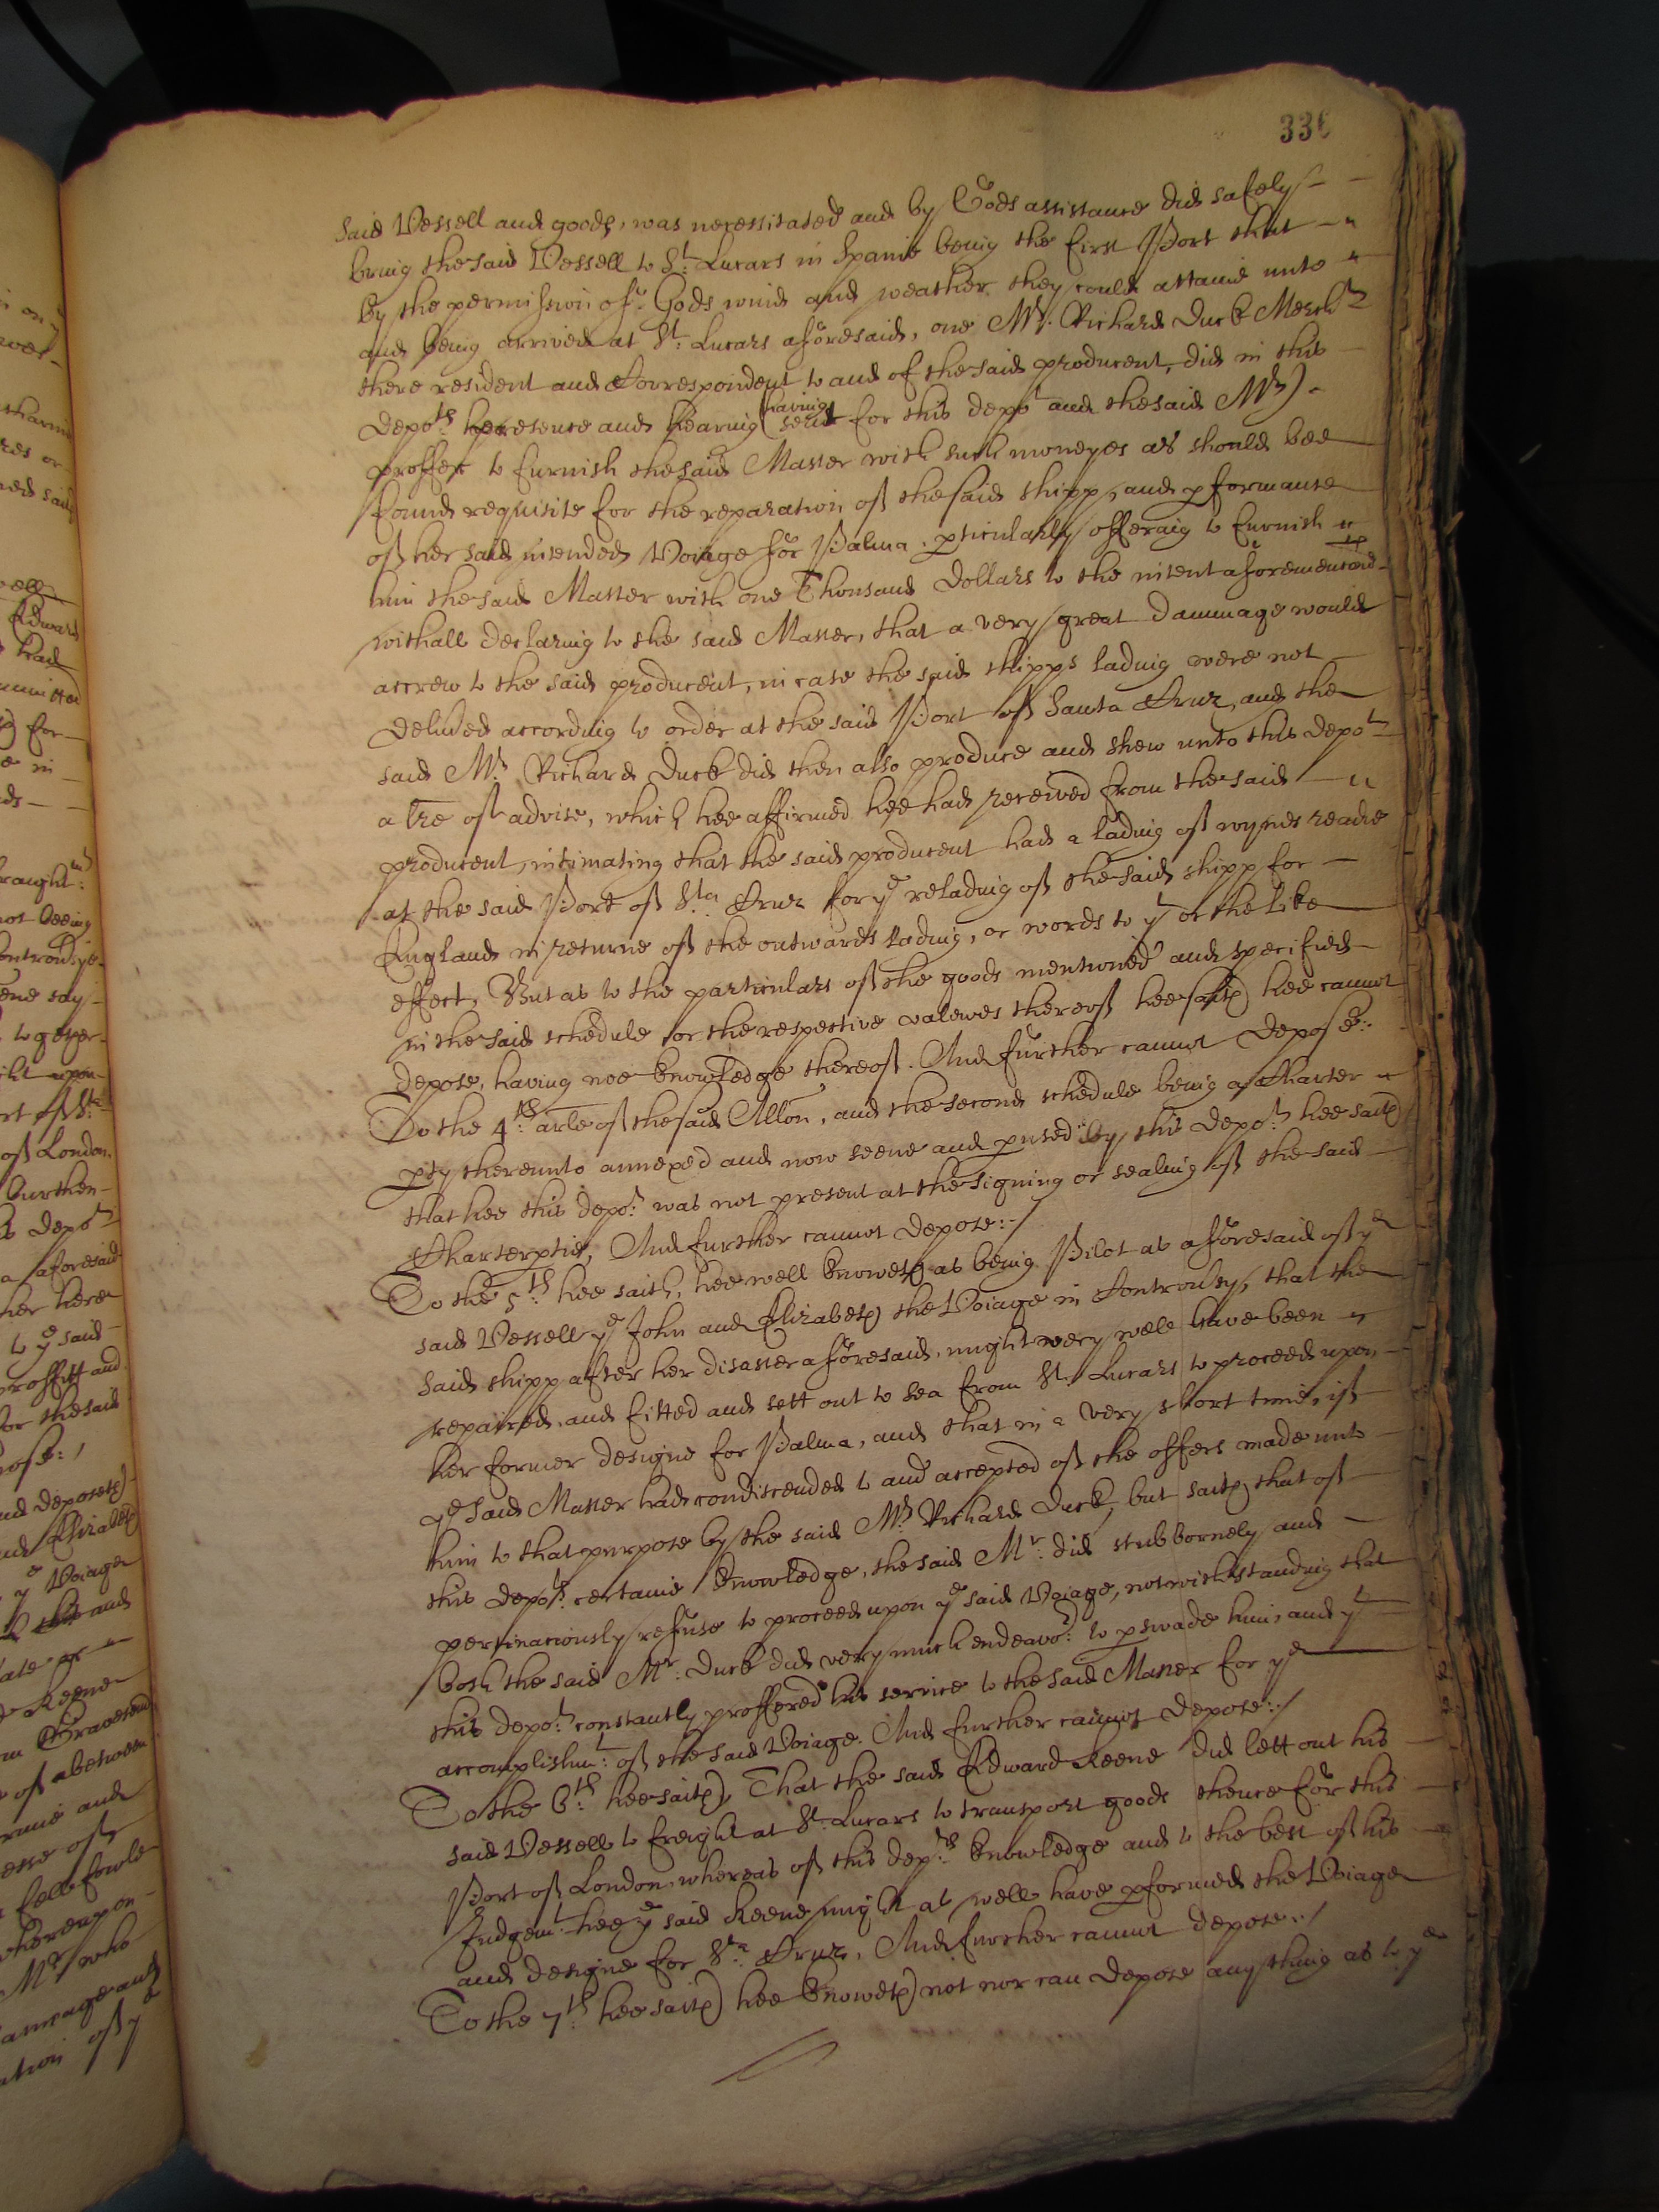 336
said Vessell and goods, was necessitated and by Gods assistance did safely
bring the said Vessell to St: Lucars in Spaine being the first Port that
by the permission of Gods wind and weather they could attaine unto
and being arrived at St: Lucars aforesaid, one Mr. Richard Duck Mercht
there resident and Correspondent to and of the said producent, did in this
depots presence and hearing (having sent for this depot and the said Mr)
proffer to furnish the said Master with such moneyes as should bee
found requisite for the reparation of the said shipp, and pformance
of her said intended Voiage for Palma. pticularly offering to furnish
him the said Master with one Thousand Dollars to the intent aforementioned
withall declaring to the said Master, that a very great dammage would
accrew to the said producent, in case the said shipps lading were not
delivered according to order at the said Port of Santa Cruz, and the
said Mr. Richard Duck did then also produce and shew unto this depot
a lre of advise, which hee affirmed hee had received from the said
producent, intimating that the said producent had a lading of wynes readie
at the said Port of Sta Cruz for ye relading of the said shipp for
England in returne of the outwards lading, or words to yt or the like
effect, But as to the particulars of the goods mentioned and specified
in the said schedule or the respective valewes thereof hee saith hee cannot
depose, having noe knowledge thereof. And further cannot depose:
To the 4th: arle of the said Allon, and the second schedule being a Charter
pty thereunto annexed and now seene and pused by this depot: hee saith
that hee this depot: was not present at the signing or sealing of the said
Charterptie, And further cannot depose:/
To the 5th: hee saith, hee well knoweth as being Pilot as aforesaid of ye
said Vessell ye John and Elizabeth the Voiage in Controvsy, that the
said shipp after her disaster aforesaid, might very well have been
repaired, and fitted and sett out to sea from St. Lucars to proceed upon
her former designe for Palma, and that in a very short time, if
ye said Master had condiscended to and accepted of the offers made unto
him to that purpose by the said Mr. Richard Duck, but saith that of
this depots: certaine knowledge, the said Mr: did stubbornely and
pertinaciously refuse to proceed upon ye said Voiage, notwithstanding that
both the said Mr: Duck did very much endeavor: to pswade him, and yt
this depot: constantly proffered his service to the said Master for ye
accomplishmt: of the said Voiage. And further cannot depose:/
To the 6th: hee saith, That the said Edward Keene did lett out his
said Vessell to freight at St. Lucars to transport goods thence for this
Port of London, whereas of this depts: knowledge and to the best of his
Judgemt: hee ye said Keene might as well have pformed the Voiage
and designe for Sta Cruz, And further cannot depose:/
To the 7th: hee saith hee knoweth not nor can depose any thing as to ye